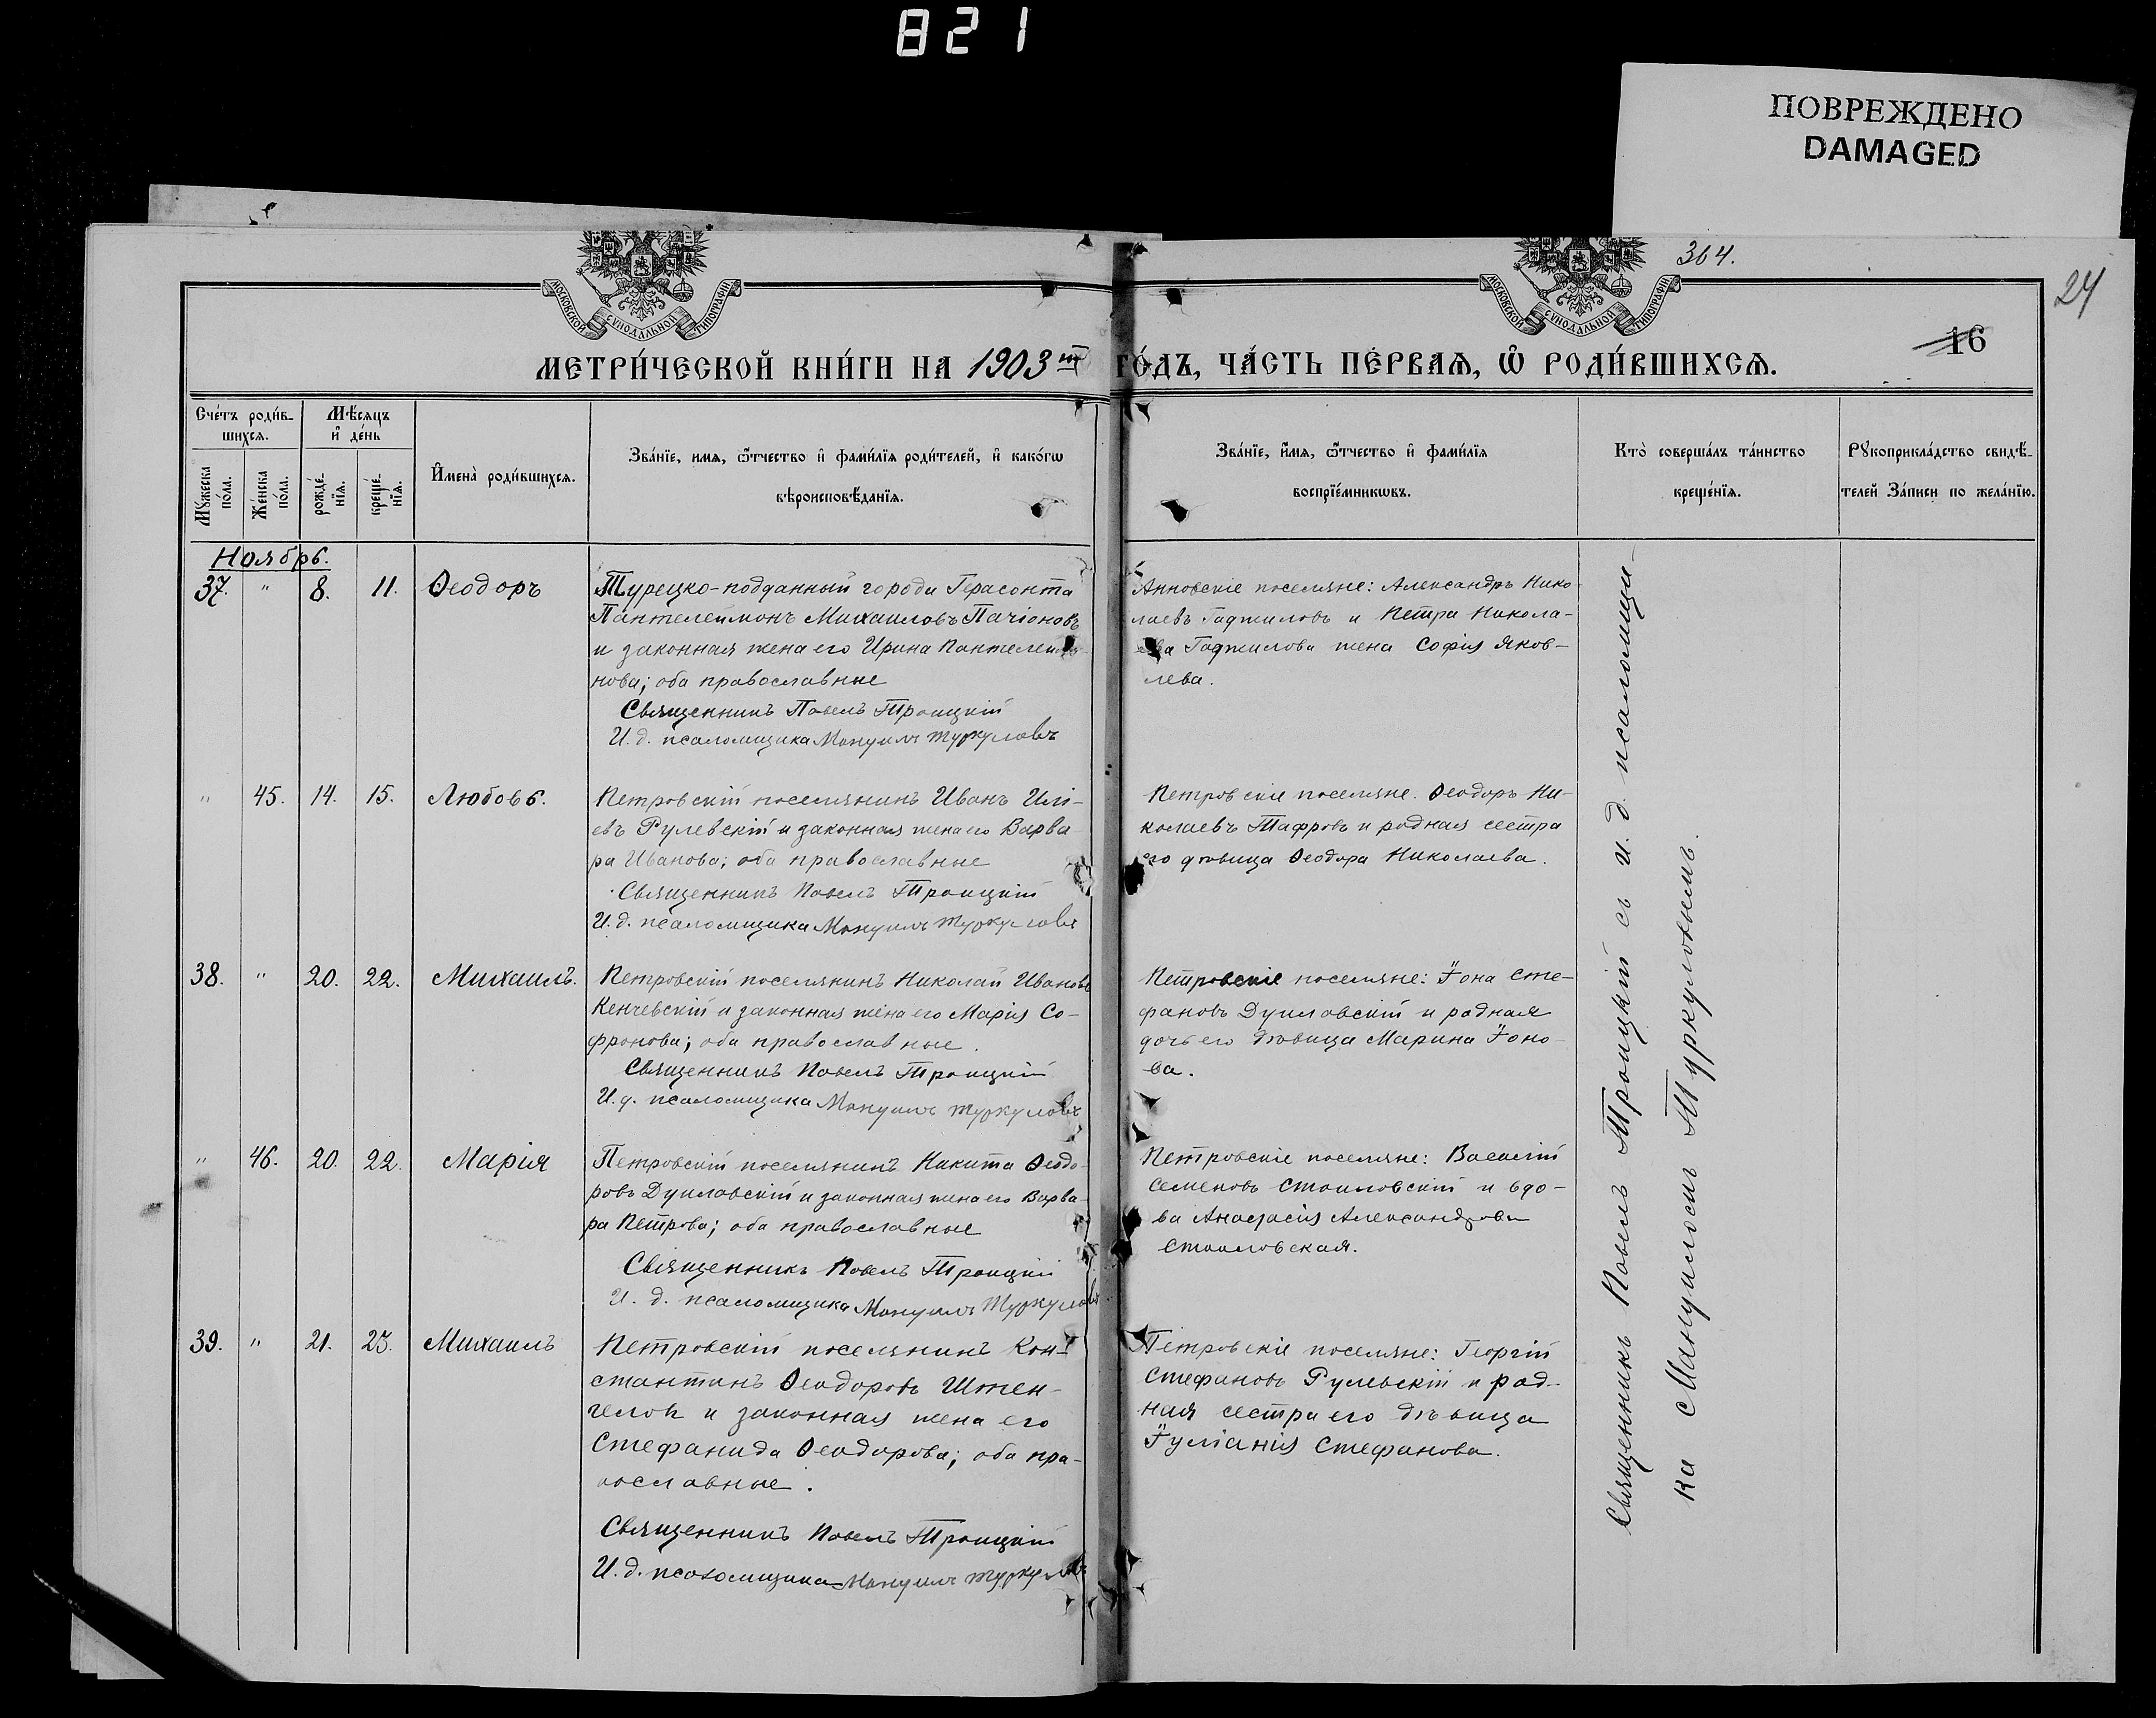 821
ПОВРЕЖДЕНО
DAMAGED
364.
24
МОСКОВСКОЙ СѴНОДАЛЬНОЙ ТИПОГРАФІИ
МОСКОВСКОЙ СѴНОДАЛЬНОЙ ТИПОГРАФІИ
16
МЕТРИ́ЧЕСКОЙ КНИ́ГИ НА 1903 й ГО́ДЪ, ЧА́СТЬ ПЕ́РВАѦ, Ѡ҆ РОДИ́ВШИХСѦ.
Сче́тъ роди́в-
шихсѧ.
Мѣ́сѧцъ
и҆ де́нь
Мꙋ́жеска
по́ла.
Же́нска
по́ла.
рожде́-
нїѧ.
креще́-
нїѧ.
И҆мена̀ роди́вшихсѧ.
Зва́нїе, имѧ, ѻ҆́тчество и҆ фами́лїѧ роди́телей, и҆ како́гѡ
вѣроисповѣ́данїѧ.
Зва́нїе, и҆́мѧ, ѻ҆́тчество и҆ фами́лїѧ
воспрїе́мникѡвъ.
Кто̀ соверша́лъ та́инство
креще́нїѧ.
Рꙋкоприкла́дство свидѣ́-
телей За́писи по жела́нїю.
Ноябрь.
37. " 8. 11. Ѳеодоръ
Турецко-подданный города Герасонта
Пантелеймонъ Михаиловъ Пачіоновъ
и законная жена его Ирина Пантелеимо-
нова; оба православные
Священникъ Павелъ Троицкій
И. д. псаломщика Мануилъ Туркуловъ
Анновскіе поселяне: Александръ Нико
лаевъ Гаджиловъ и Петра Никола-
ева Гаджилова жена Софія Яков-
лева.
" 45. 14. 15. Любовь.
Петровскій поселянинъ Иванъ Илі-
евъ Рулевскій и законная жена его Варва
ра Иванова; оба православные
Священникъ Павелъ Троицкій
И. д. псаломщика Мануилъ Туркуловъ
Петровскіе поселяне. Ѳеодоръ Ни-
колаевъ Тафровъ и родная сестра
его дѣвица Ѳеодора Николаева.
38. " 20. 22. Михаилъ.
Петровскій поселянинъ Николай Ивановъ
Кенчевскій и законная жена его Марія Со-
фронова; оба православные.
Священникъ Павелъ Троицкій
И. д. псаломщика Мануилъ Туркуловъ
Петровскіе поселяне: Іона Сте-
фановъ Дуиловскій и родная
дочь его дѣвица Марина Іоно-
ва.
" 46. 20. 22. Марія
Петровскій поселянинъ Никита Ѳеодо-
ровъ Дуиловскій и законная жена его Варва-
ра Петрова; оба православные
Священникъ Павелъ Троицкій
И. д. псаломщика Мануилъ Туркуловъ
Петровскіе поселяне: Василій
Семеновъ Стоиловскій и вдо-
ва Анастасія Александрова
Стоиловская.
39. " 21. 23. Михаилъ
Петровскій поселянинъ Кон-
стантинъ Ѳеодоровъ
и законная жена его
Стефанида Ѳеодорова; оба пра-
вославные.
Священникъ Павелъ Троицкій
И. д. псаломщика Мануилъ Туркуловъ
Петровскіе поселяне: Георгій
Стефановъ Рулевскій и род-
ная сестра его дѣвица
Іуліанія Стефанова.
Священникъ Павелъ Троицкій съ и. д. псаломщи-
ка Мануиломъ Туркуловымъ.